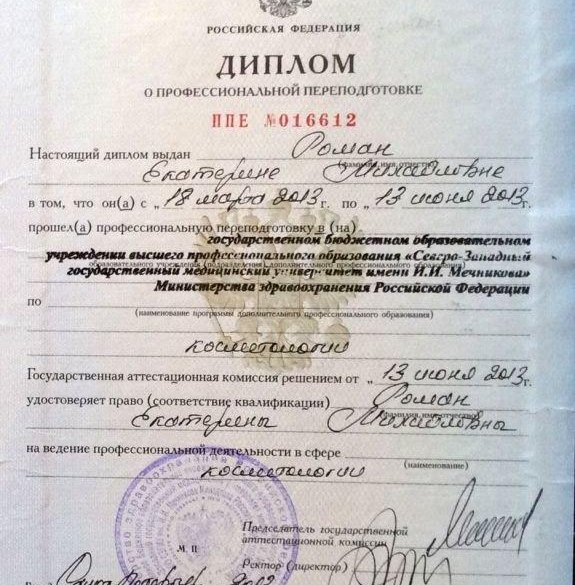 РОССИЙСКАЯ ФЕДЕРАЦИЯ
ДИПЛОМ
О ПРОФЕССИОНАЛЬНОЙ ПЕРЕПОДГОТОВКЕ
ППЕ №016612
Настоящий диплом выдан Роман
(фамилия, имя, отчество)
Екатерине Михайловне
в том, что он(а) с „ 18 марта 2013г. по „ 13 июня 2013г.
прошел(а) профессиональную переподготовку в (на)
государственном бюджетном образовательном
учреждении высшего профессионального образования «Северо-Западный
государственный медицинский университет имени И.И. Мечникова»
Министерства здравоохранения Российской Федерации
по
(наименование программы дополнительного профессионального образования)
косметологии
Государственная аттестационная комиссия решением от „ 13 июня 2013г.
удостоверяет право (соответствие квалификации) Роман
(фамилия, имя, отчество)
Екатерины Михайловны
на ведение профессиональной деятельности в сфере
(наименование)
косметологии
Председатель государственной
аттестационной комиссии
М. П
Ректор (директор)